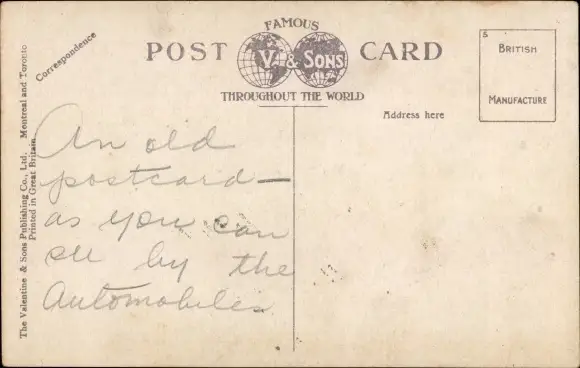 FAMOUS
POST CARD
V & SONS
THROUGHOUT THE WORLD
BRITISH
MANUFACTURE
Correspondence
Address here
The Valentine & Sons Publishing Co., Ltd. Montreal and Toronto
Printed in Great Britain.
An old
postcard—
as you can
see by the
Automobiles